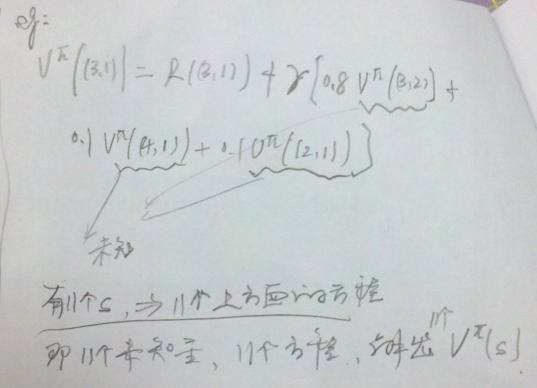 eg:
V^π((3,1)) = R((3,1)) + γ[0.8 V^π((3,2)) +
0.1 V^π((4,1)) + 0.1 V^π((2,1))]
未知
有11个s, ⇒ 11个上方面的方程
即11个未知量, 11个方程, 解出11个 V^π(s)